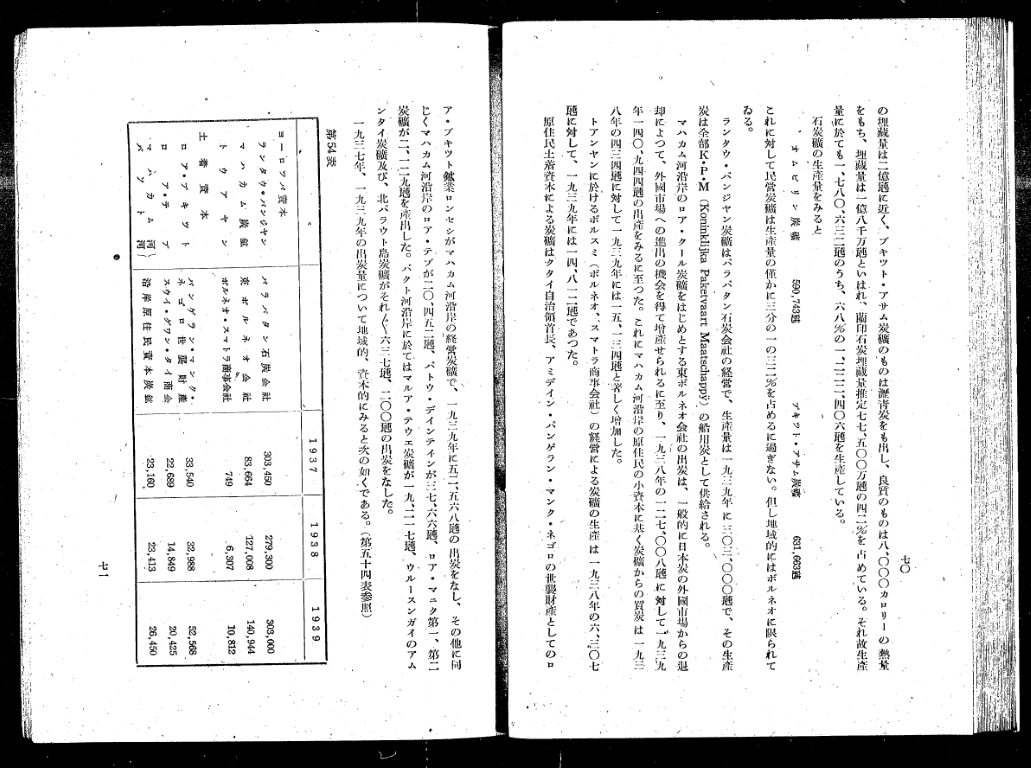 七〇
の埋藏量は二億瓲に近く、ブキツト・アサム炭礦のものは瀝青炭をも出し、良質のものは八、〇〇〇カロリーの熱量
をもち、埋藏量は一億八千万瓲といはれ、蘭印石炭埋藏量推定七七、五〇〇万瓲の四二％を占めている。それ故生産
量に於ても一、七八〇、六三二瓲のうち、六八％の一、二二二、四〇六瓲を生産している。
石炭礦の生産量をみると
オムビリン炭礦 590,743瓲 ブキット・アサム炭礦 631,663瓲
これに対して民営炭礦は生産量の僅かに三分の一の三二％を占めるに過ぎない。但し地域的にはボルネオに限られて
ゐる。
ランタウ・パンジヤン炭礦はパラパタン石炭会社の経営で、生産量は一九三九年に三〇三、〇〇〇瓲で、その生産
炭は全部K・P・M (Koninklijka Paketvaart Maatschappÿ) の船用炭として供給される。
マハカム河沿岸のロア・クール炭礦をはじめとする東ボルネオ会社の出炭は、一般的に日本炭の外國市場からの退
却によつて、外國市場への進出の機会を得て増産せられるに至り、一九三八年の一二七、〇〇八瓲に対して一九三九
年一四〇、九四四瓲の出産をみるに至つた。これにマハカム河沿岸の原住民の小資本に基く炭礦からの買炭は一九三
八年の四三四瓲に対して一九三九年には一五、一三四瓲と著しく増加した。
トアンヤンに於けるボルスミ（ボルネオ、スマトラ商事会社）の経営による炭礦の生産は一九三八年の六、三〇七
瓲に対して、一九三九年には一四、八一二瓲であつた。
原住民土着資本による炭礦はクタイ自治領首長、アミデイン・パンゲラン・マンク・ネゴロの世襲財産としてのロ
ア・ブキツト鉱業ロンセシがマハカム河沿岸の経営炭礦で、一九三九年に五二、五六八瓲の出炭をなし、その他に同
じくマハカム河沿岸のロア・テブが二〇、四五二瓲、バトウ・デインテインが三七、六六瓲、ロア・マニク第一、第二
炭礦が二、一二九瓲を産出した。パクト河沿岸に於てはマルア・テウェ炭礦が一九、二一七瓲、ウルースンガイのアム
ンタイ炭礦及び、北パラウト島炭礦がそれ〲六三七瓲、二〇〇瓲の出炭をなした。
一九三七年、一九三九年の出炭量について地域的、資本的にみると次の如くである。（第五十四表参照）
第54表
1937 1938 1939
ヨーロッパ資本
ランタウ・パンジヤン パラパタン石炭会社 303,450 279,300 303,000
マハカム炭鉱 東ボルネオ会社 83,664 127,008 140,944
トウアヤン ボルネオ・スマトラ商事会社 749 6,307 10,812
土着資本
ロア・ブキツト パンゲラン・マンク・ネゴロ世襲財産 33,540 32,988 52,568
ロア・テブ スウイ・グワン・タイ商会 22,689 14,849 20,425
マハカム河 バツト河 沿岸原住民資本炭鉱 23,160 23,413 26,450
七一